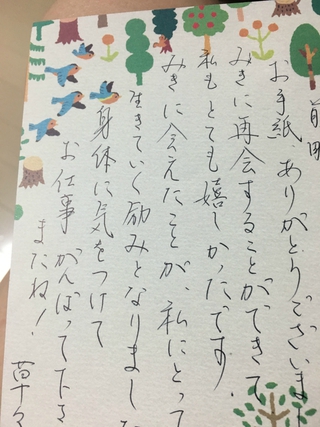 前略
お手紙、ありがとうございま
みきに再会することができて
私もとても嬉しかったです。
みきに会えたことが、私にとって
生きていく励みとなりまし
身体に気をつけて
お仕事がんばって下さ
またね!
草々